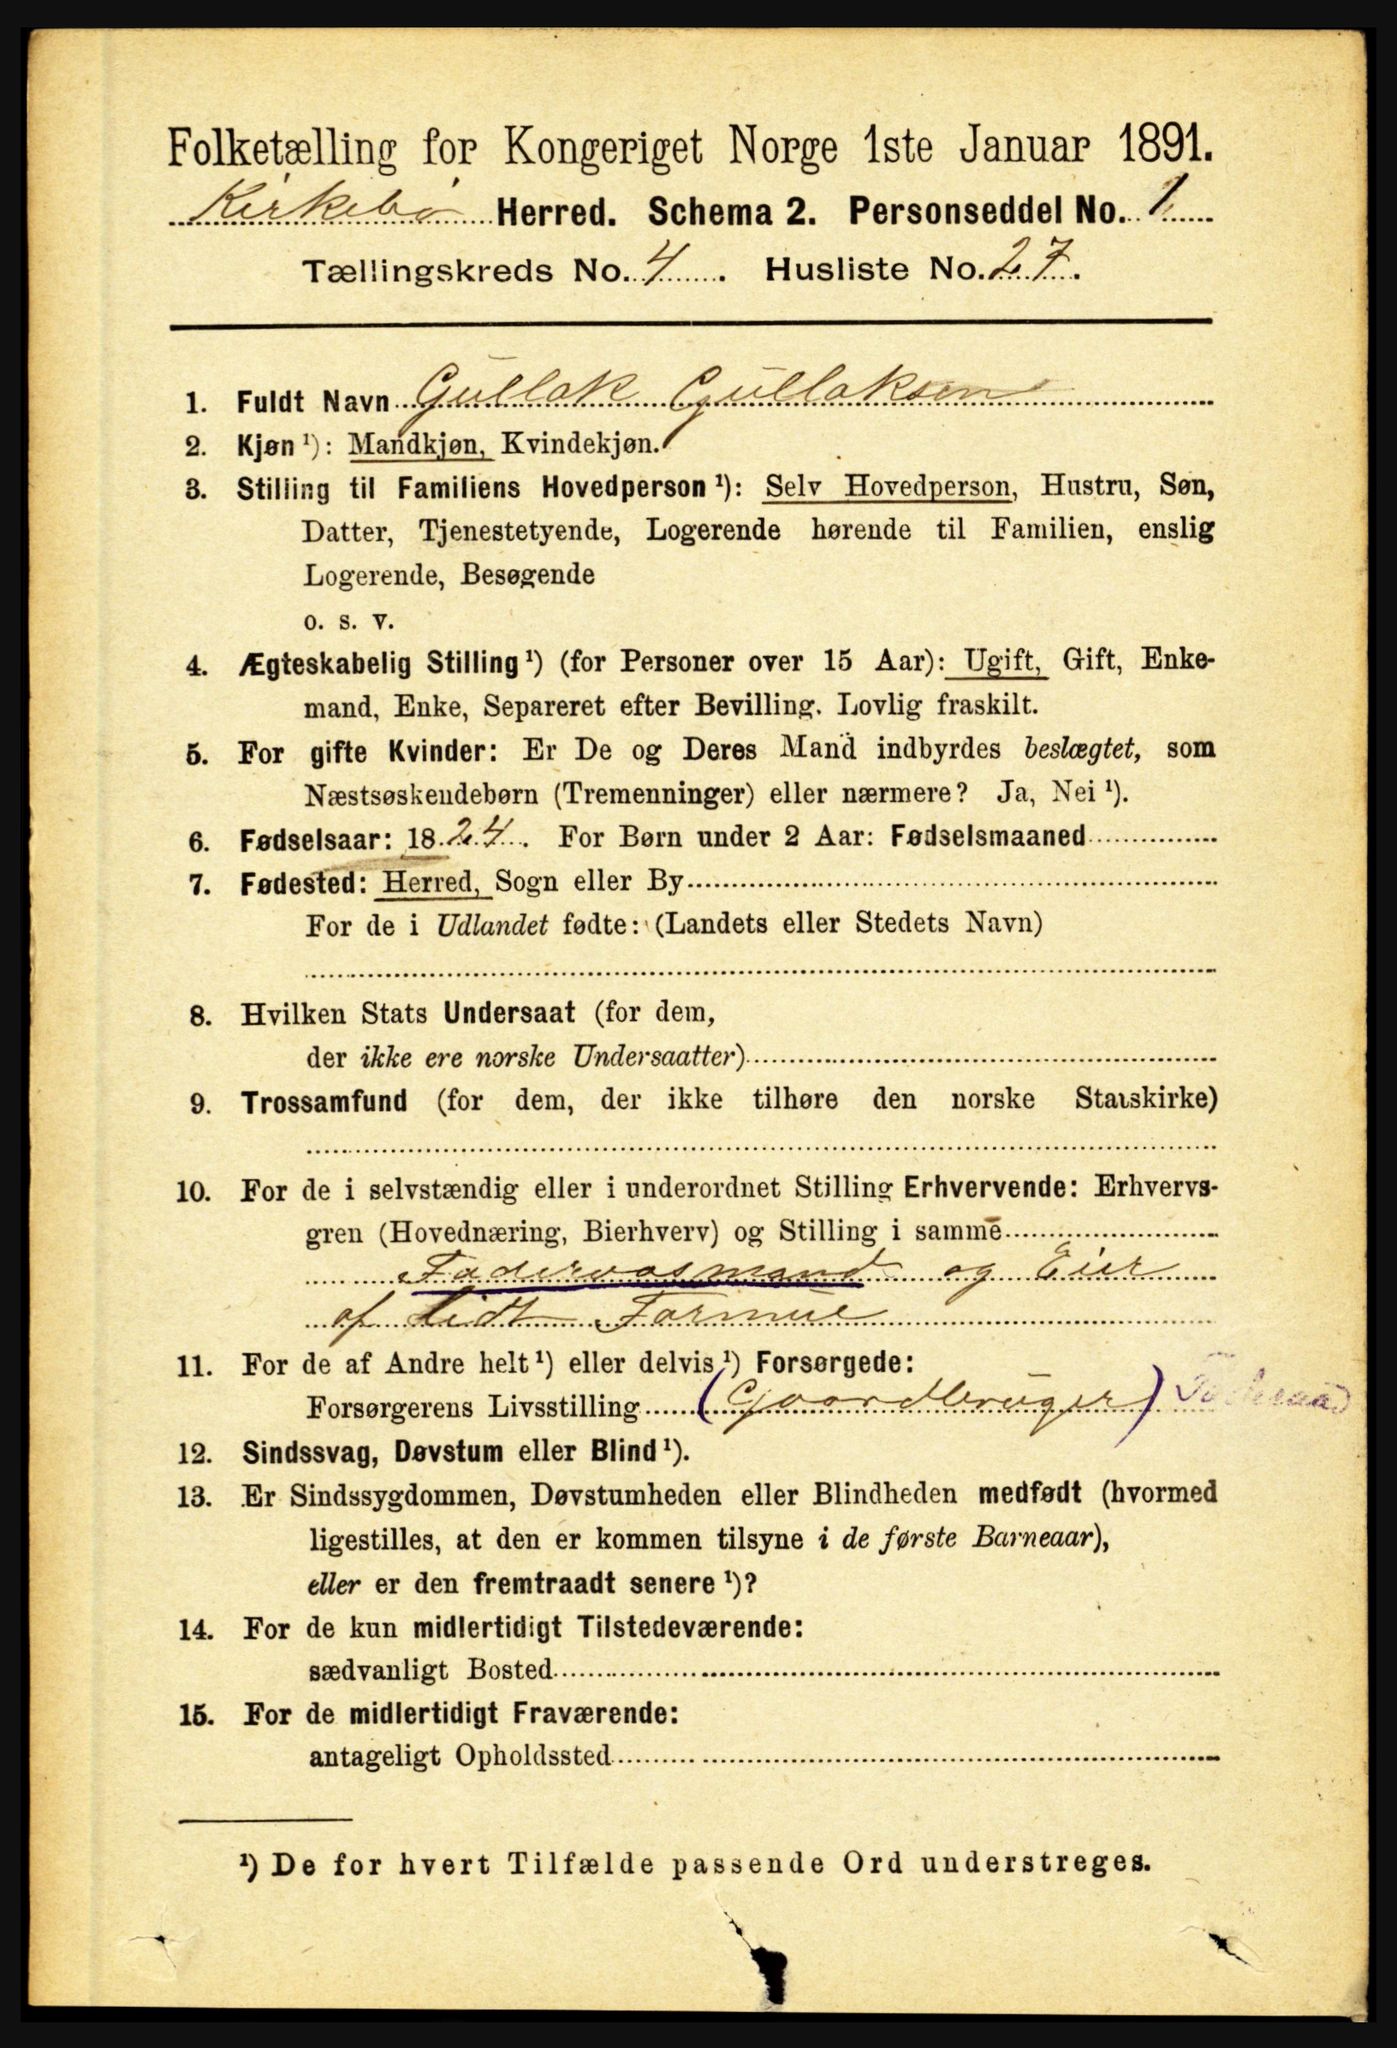 Folketælling for Kongeriget Norge 1ste Januar 1891.
Kirkebø Herred. Schema 2. Personseddel No. 1
Tællingskreds No. 4. Husliste No. 27.
1. Fuldt Navn Gullak Gullaksen
2. Kjøn ¹): Mandkjøn, Kvindekjøn.
3. Stilling til Familiens Hovedperson ¹): Selv Hovedperson, Hustru, Søn,
Datter, Tjenestetyende, Logerende hørende til Familien, enslig
Logerende, Besøgende
o. s. v.
4. Ægteskabelig Stilling ¹) (for Personer over 15 Aar): Ugift, Gift, Enke-
mand, Enke, Separeret efter Bevilling. Lovlig fraskilt.
5. For gifte Kvinder: Er De og Deres Mand indbyrdes beslægtet, som
Næstsøskendebørn (Tremenninger) eller nærmere? Ja, Nei ¹).
6. Fødselsaar: 1824. For Børn under 2 Aar: Fødselsmaaned
7. Fødested: Herred, Sogn eller By
For de i Udlandet fødte: (Landets eller Stedets Navn)
8. Hvilken Stats Undersaat (for dem,
der ikke ere norske Undersaatter)
9. Trossamfund (for dem, der ikke tilhøre den norske Statskirke)
10. For de i selvstændig eller i underordnet Stilling Erhvervende: Erhvervs-
gren (Hovednæring, Bierhverv) og Stilling i samme
Føderaasmand og Eier
af lidt Formue
11. For de af Andre helt ¹) eller delvis ¹) Forsørgede:
Forsørgerens Livsstilling (Gaardbruger) Føderaad
12. Sindssvag, Døvstum eller Blind ¹).
13. Er Sindssygdommen, Døvstumheden eller Blindheden medfødt (hvormed
ligestilles, at den er kommen tilsyne i de første Barneaar),
eller er den fremtraadt senere ¹)?
14. For de kun midlertidigt Tilstedeværende:
sædvanligt Bosted
15. For de midlertidigt Fraværende:
antageligt Opholdssted
¹) De for hvert Tilfælde passende Ord understreges.